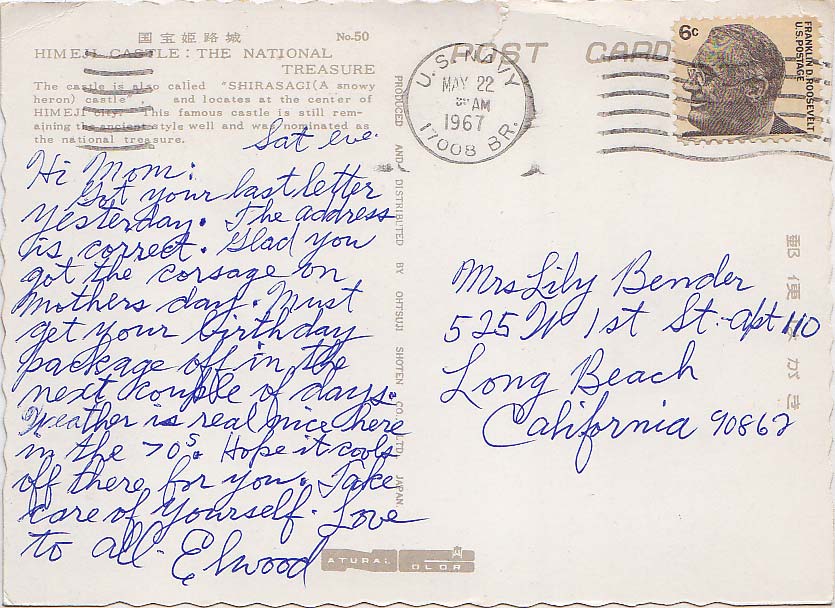 国宝姫路城 No.50
HIMEJI CASTLE: THE NATIONAL
TREASURE
The castle is also called "SHIRASAGI(A snowy
heron) castle", and locates at the center of
HIMEJI city. This famous castle is still rem-
aining the ancient style well and was nominated as
the national treasure.
Sat eve.
Hi Mom:
Got your last letter
yesterday. The address
is correct. Glad you
got the corsage on
Mothers day. Must
get your birthday
package off in the
next couple of days.
Weather is real nice here
in the 70s. Hope it cools
off there for you. Take
care of yourself. Love
to all. Elwood
PRODUCED AND DISTRIBUTED BY OHTSUJI SHOTEN CO., LTD JAPAN.
NATURAL COLOR
POST CARD
U.S. NAVY
MAY 22
AM
1967
17008 BR.
6c
FRANKLIN D. ROOSEVELT
U.S. POSTAGE
郵便はがき
Mrs Lily Bender
525 W 1st St. - apt 110
Long Beach
California 90862